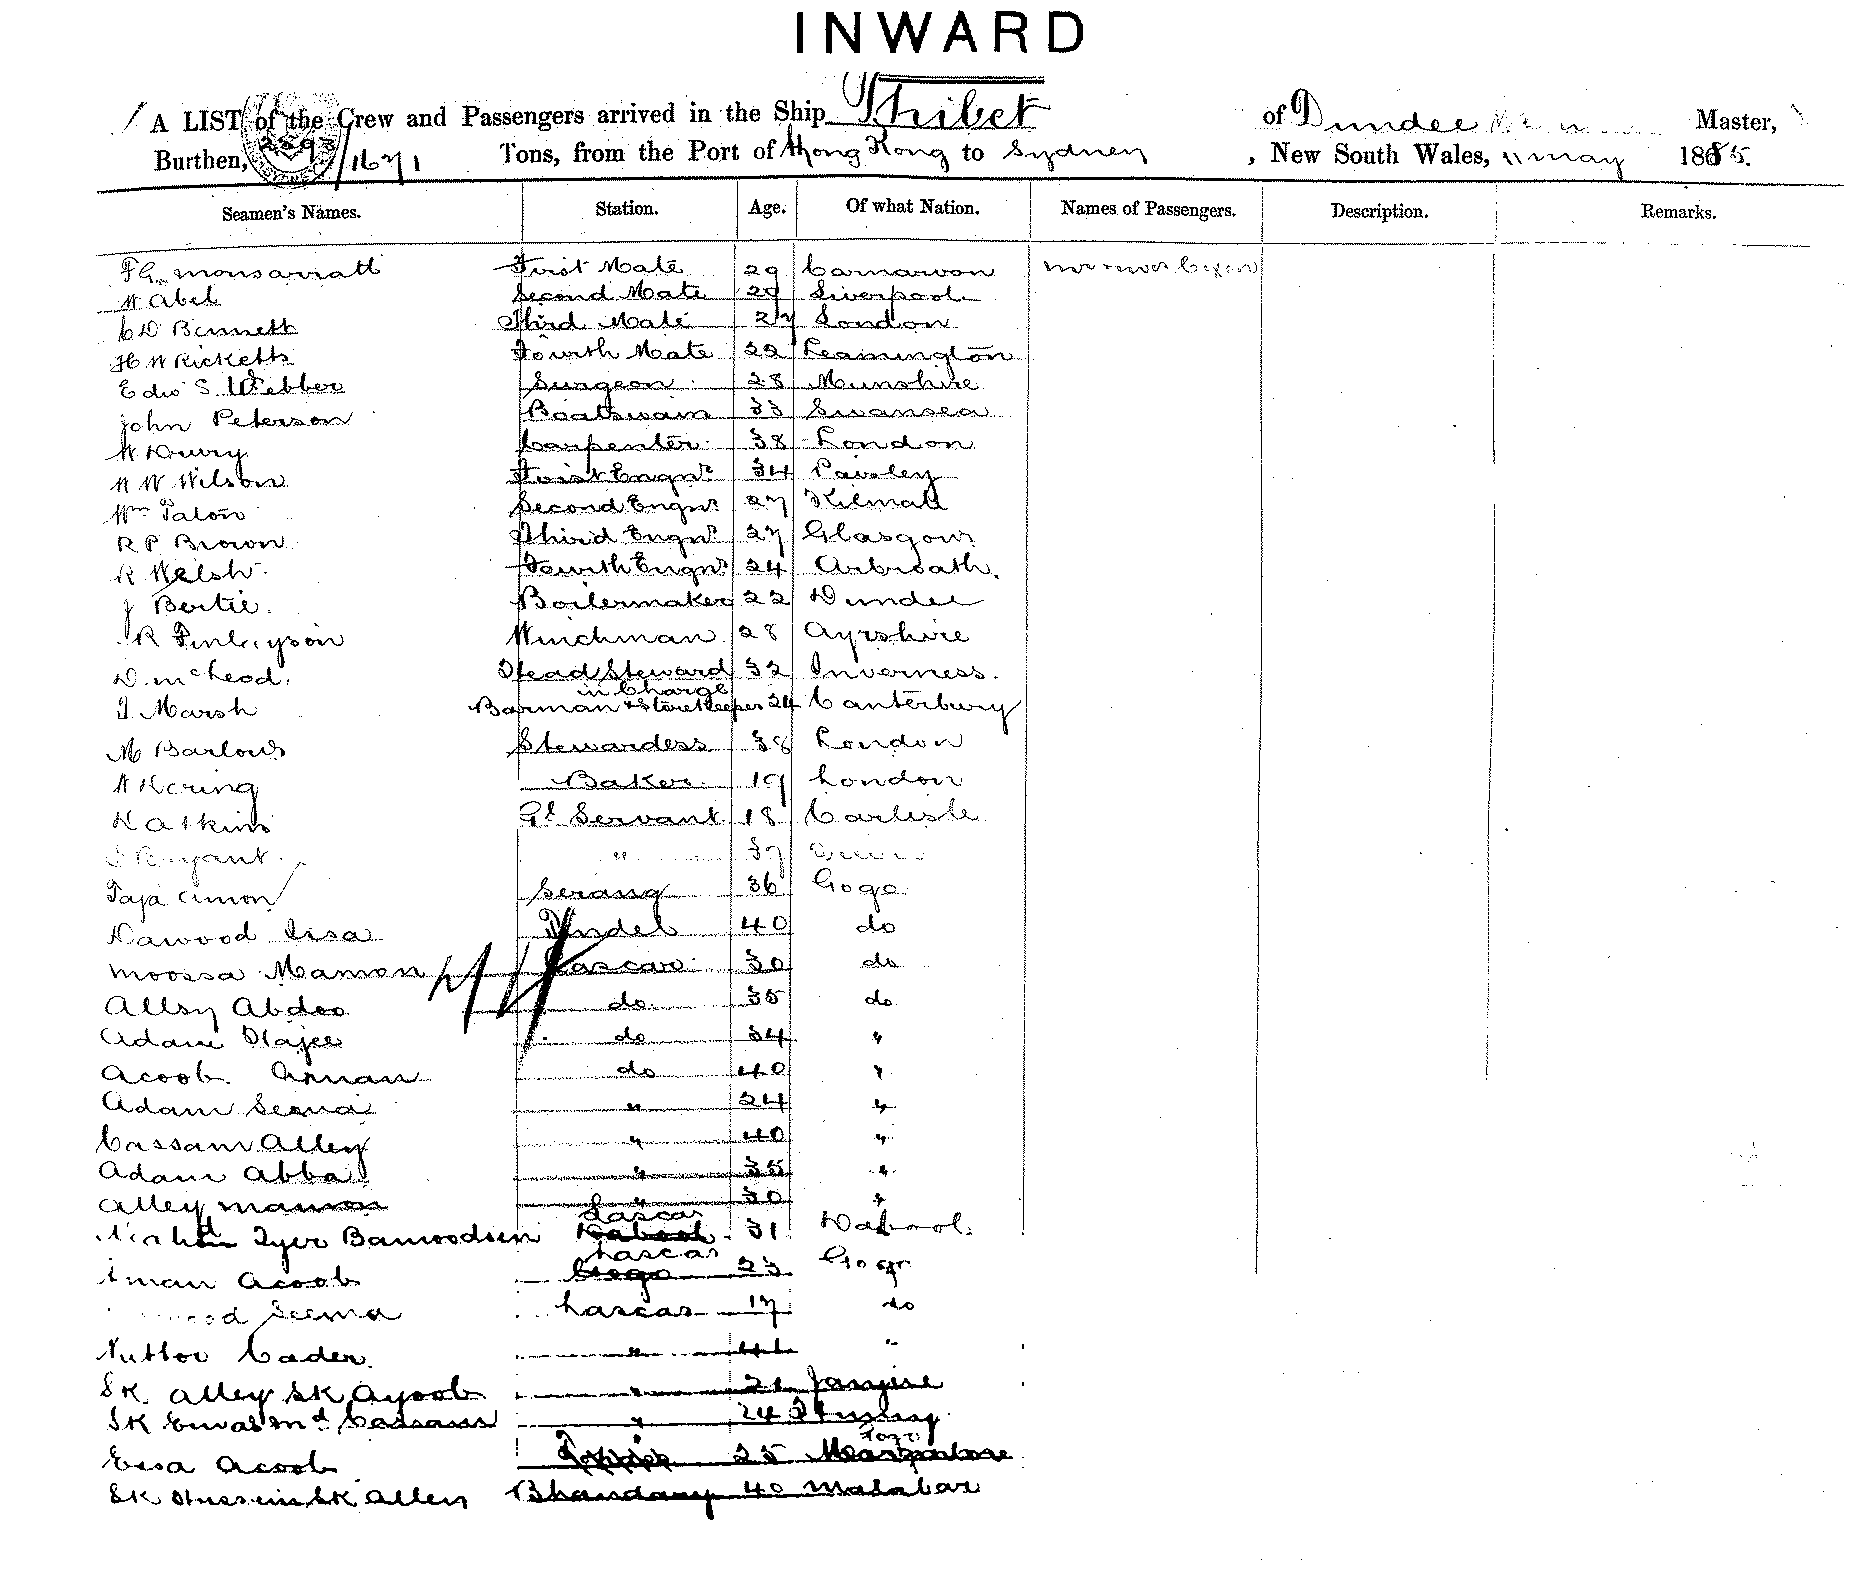 INWARD
A LIST of the Crew and Passengers arrived in the Ship Thibet of Dundee Master,
Burthen, 2593/1671 Tons, from the Port of Hong Kong to Sydney, New South Wales, 11 may 1885.
Seamen's Names. Station. Age. Of what Nation. Names of Passengers. Description. Remarks.
FG Monsarratt First Mate 29 Carnarvon
W Abel Second Mate 29 Liverpool
C D Bennett Third Mate 27 London
H W Ricketts Fourth Mate 22 Leamington
Edw S Webber Surgeon 28
John Peterson Boatswain 33 Swansea
W Drury Carpenter 38 London
W W Wilson First Engnr 34 Paisley
Wm Paton Second Engnr 27
R P Brown Third Engnr 27 Glasgow
R Welsh Fourth Engnr 24 Arbroath.
J Bertie. Boilermaker 22 Dundee
R Finlayson Winchman 28 Ayrshire
D. McLeod. Head Steward 32 Inverness.
in Charge
J Marsh Barman & Storekeeper 24 Canterbury
M Barlow Stewardess 38 London
W Hering Baker 19 London
H Atkins Gl Servant 18 Carlisle
" 37
Serang 36 Gogo
Dawood Issa Tindel 40 do
Moossa Mamon Lascar 30 do
Allsy Abdoo do 35 do
Adam Hajee do 34 "
Acoob Aman do 40 "
Adam Seema " 24 "
Cassam Alley " 40 "
Adam Abba " 35 "
Alley mamon " 30 "
Lascar
Iyer Bamoodeen 31 Dabool.
Lascar
Aman Acoob Gogo 23 Gogo
Seema Lascar 17 do
Cader " "
SK Alley SK Ayoob " 21
SK Cassam " 24
Essa Acoob 25
SK Hussein SK Alley Bhandary 40 Malabar